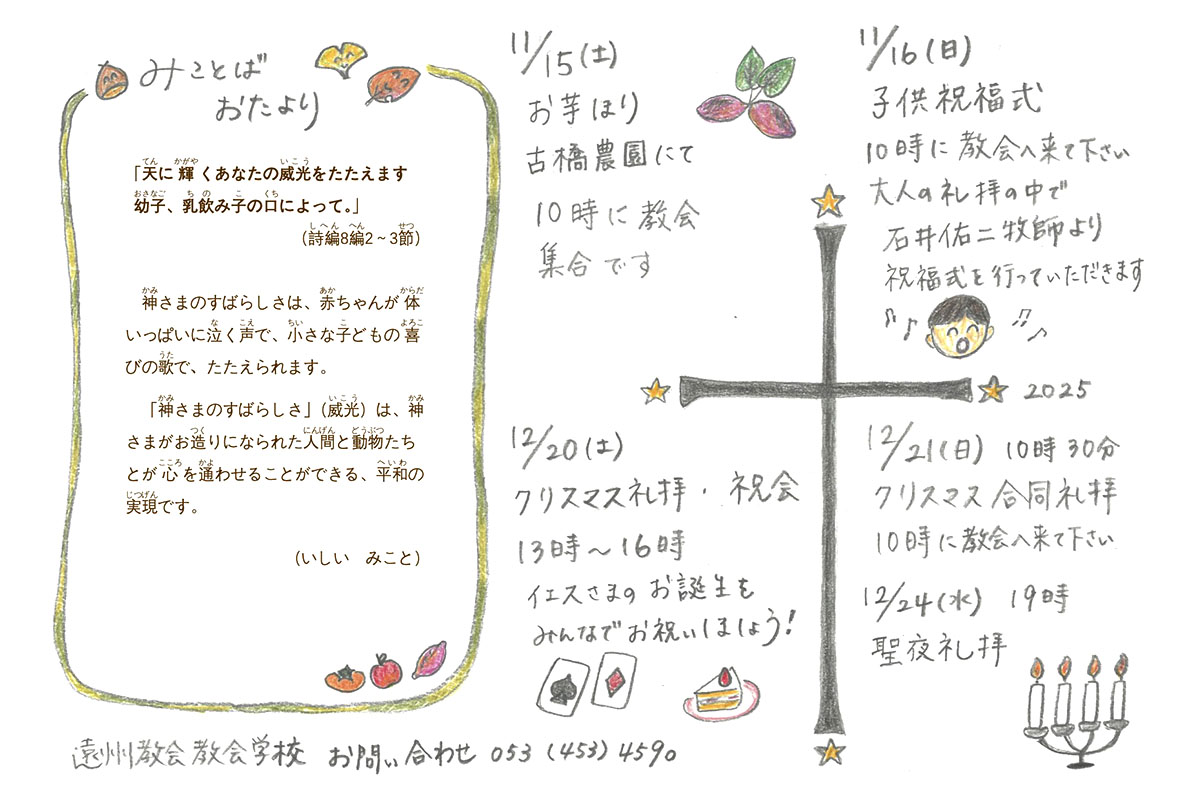 みことば
おたより
「天に輝くあなたの威光をたたえます
幼子、乳飲み子の口によって。」
(詩編8編2～3節)
神さまのすばらしさは、赤ちゃんが体
いっぱいに泣く声で、小さな子どもの喜
びの歌で、たたえられます。
「神さまのすばらしさ」(威光)は、神
さまがお造りになられた人間と動物たち
とが心を通わせることができる、平和の
実現です。
(いしい　みこと)
11/15(土)
お芋ほり
古橋農園にて
10時に教会
集合です
11/16(日)
子供祝福式
10時に教会へ来て下さい
大人の礼拝の中で
石井佑二牧師より
祝福式を行っていただきます
2025
12/20(土)
クリスマス礼拝・祝会
13時～16時
イエスさまのお誕生を
みんなでお祝いしましょう!
12/21(日) 10時30分
クリスマス合同礼拝
10時に教会へ来て下さい
12/24(水) 19時
聖夜礼拝
遠州教会教会学校 お問い合わせ 053(453)4590